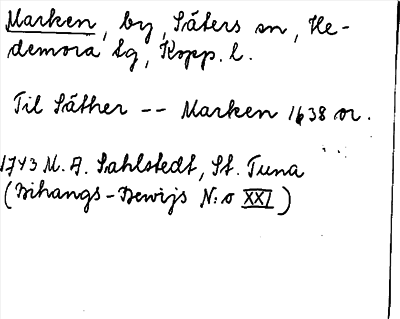 Marken, by, Säters sn, He-
demora tg, Kopp. l.
Til Säther -- Marken 1638 or.
1743 M. A. Sahlstedt, St. Tuna
(Bihangs-Bewijs N:o XXI)